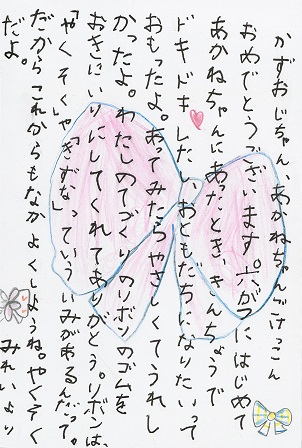 かずおじちゃん、あかねちゃんけっこん
おめでとうございます。六がつにはじめて
あかねちゃんにあったとき、きんちょうで
ドキドキした。おともだちになりたいって
おもったよ。あってみたらやさしくてうれし
かったよ。わたしのてづくりのリボンのゴムを
おきにいりにしてくれてありがとう。リボンは、
「やくそく」や「きずな」っていういみがあるんだって。
だからこれからもなかよくしようね。やくそく
だよ。
みれいより